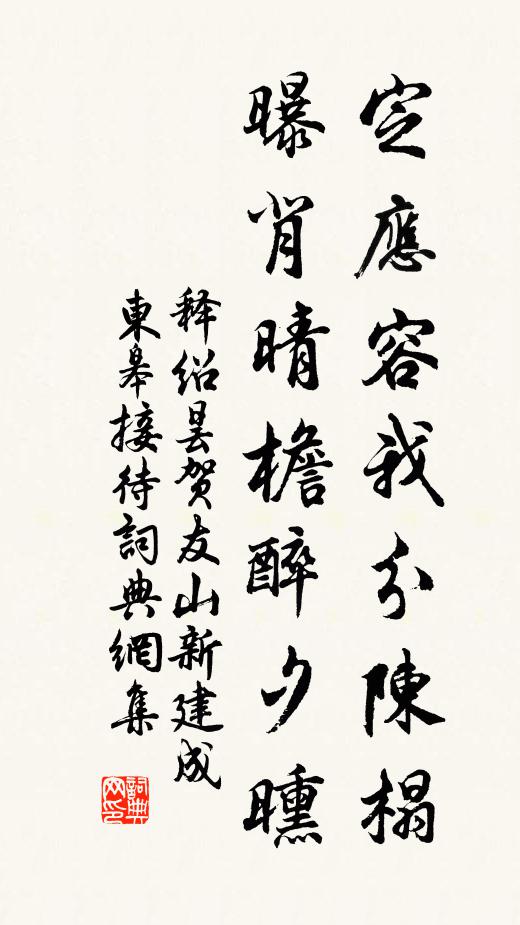 定應容我分陳榻
曝背晴檐醉夕曛
释绍昙贺友山新建成
東皋接待詞典網集
詞典网印